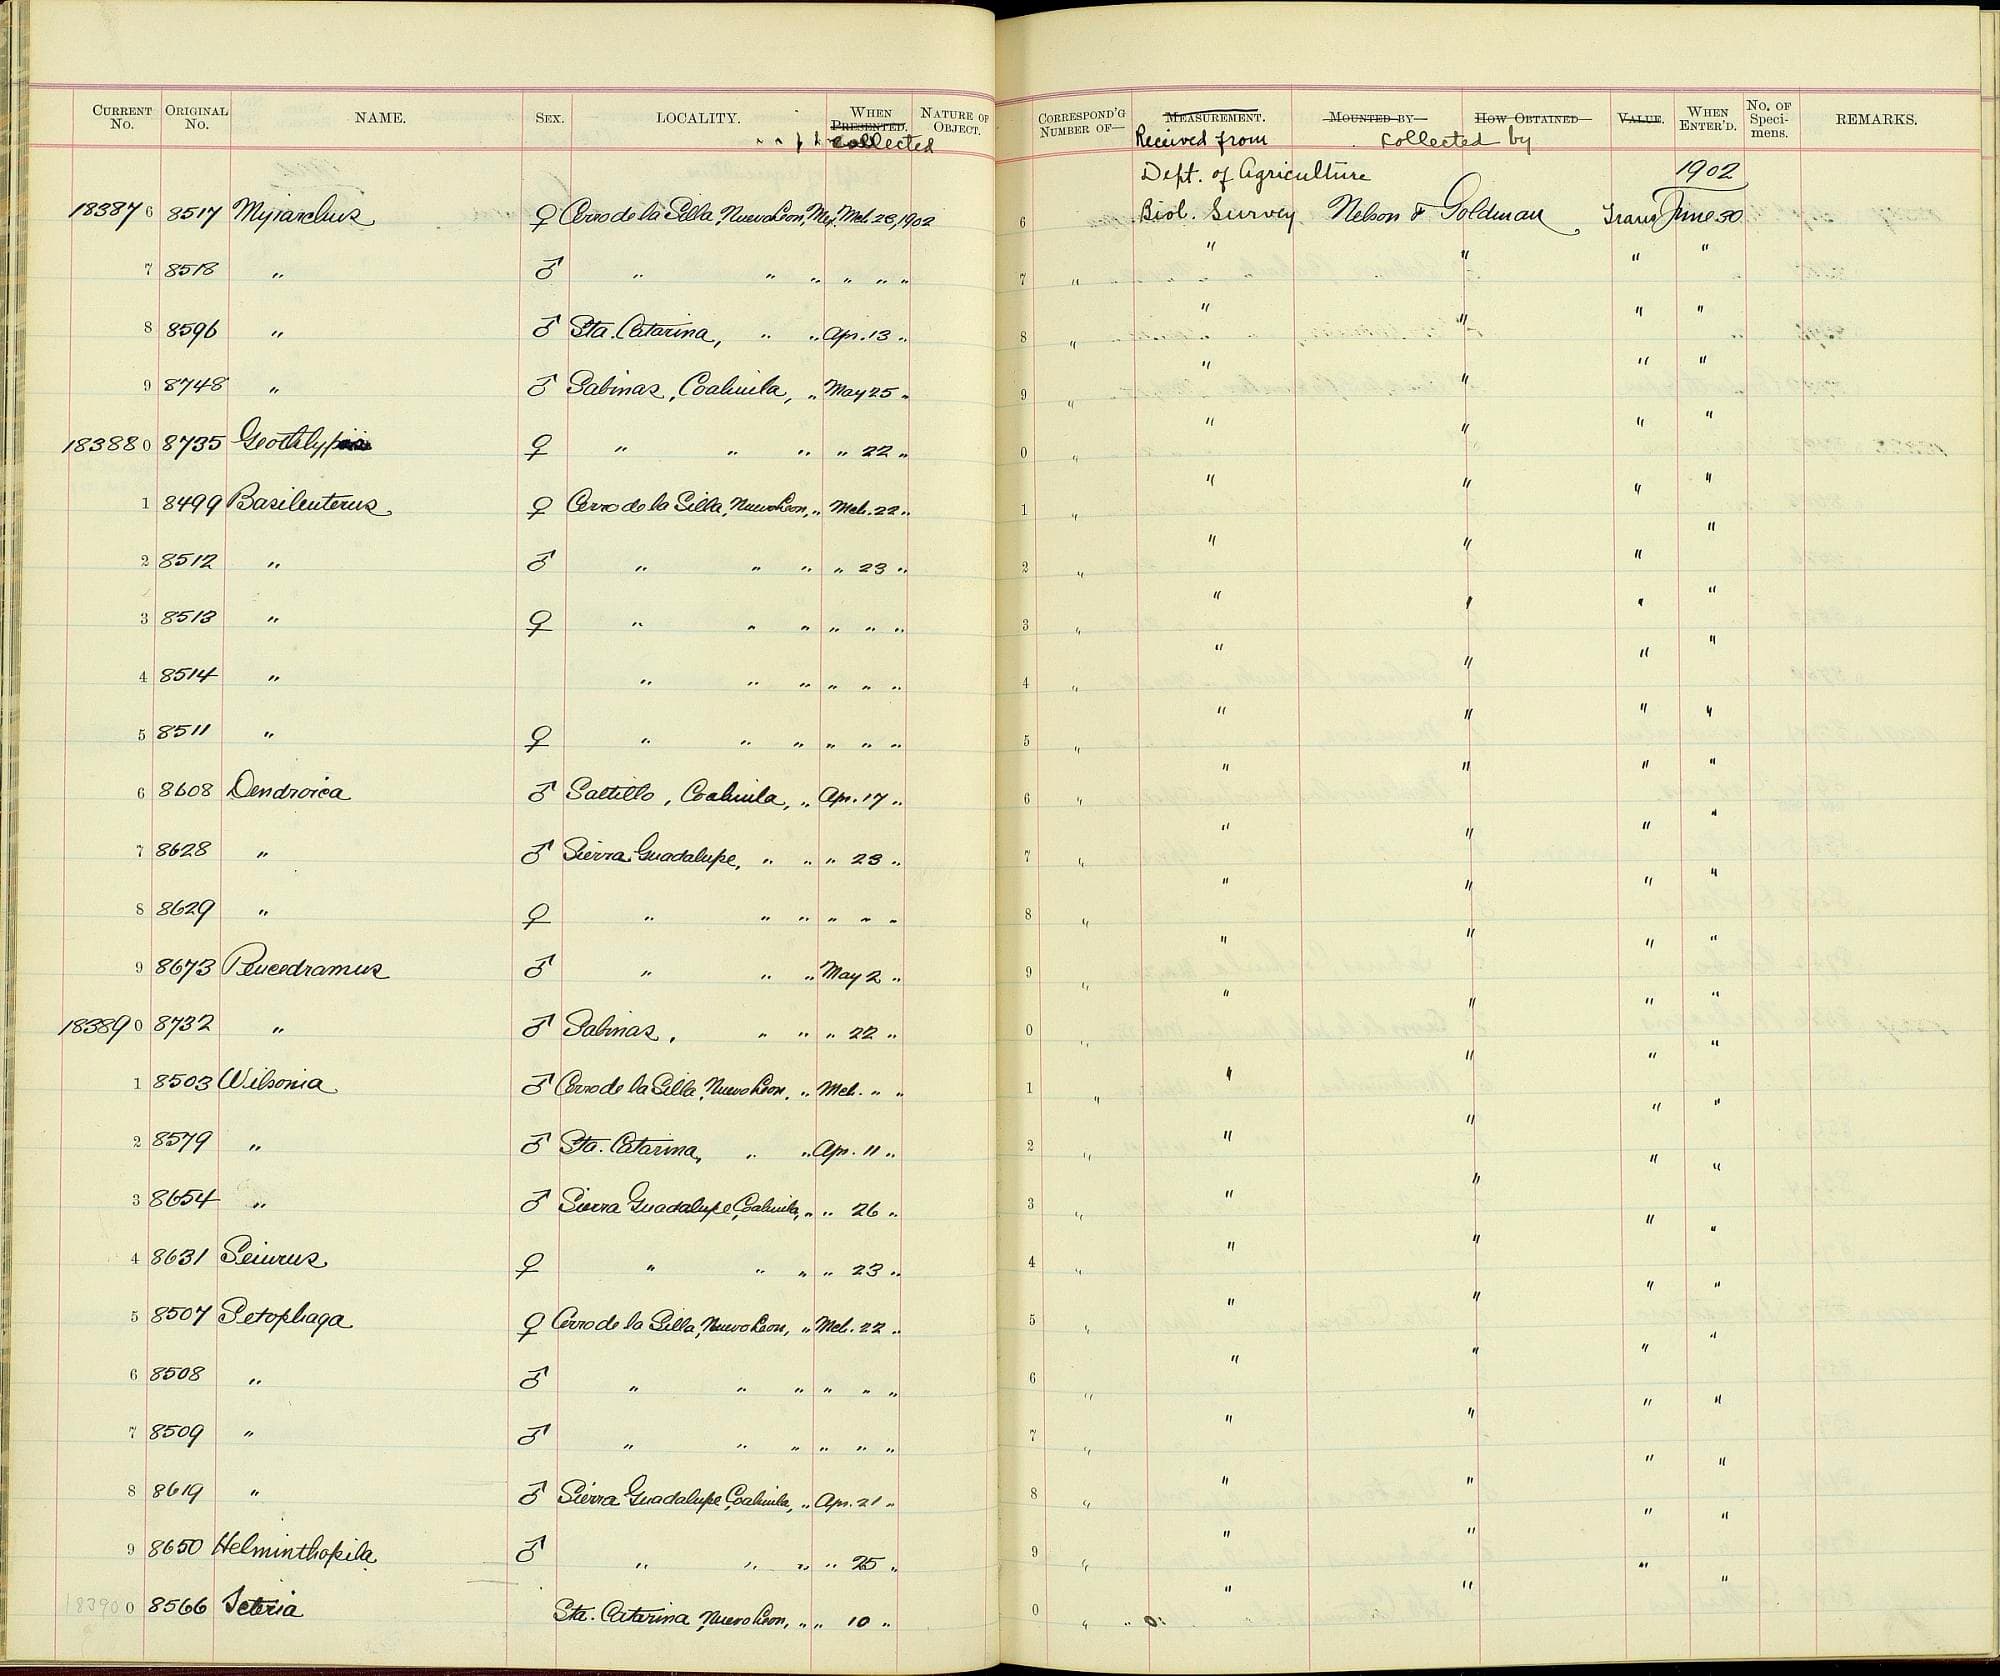 CURRENT No. ORIGINAL No. NAME. SEX. LOCALITY. WHEN PRESENTED. collected NATURE OF OBJECT. CORRESPOND'G NUMBER OF— MEASUREMENT. Received from MOUNTED BY— collected by HOW OBTAINED VALUE. WHEN ENTER'D. No. OF Speci-mens. REMARKS.
Dept. of Agriculture 1902
18387 6 8517 Myiarchus ♀ Cerro de la Silla, Nuevo Leon, Mex. Mch. 23, 1902 6 Biol. Survey Nelson & Goldman Trans June 30
7 8518 " ♂ " " " " " " 7 " " " " "
8 8596 " ♂ Sta. Catarina, " " Apr. 13 " 8 " " " " "
9 8748 " ♂ Sabinas, Coahuila, " May 25 " 9 " " " " "
18388 0 8735 Geothlypis ♀ " " " " 22 " 0 " " " " "
1 8499 Basileuterus ♀ Cerro de la Silla, Nuevo Leon, " Mch. 22 " 1 " " " " "
2 8512 " ♂ " " " " 23 " 2 " " " " "
3 8513 " ♀ " " " " " " 3 " " " " "
4 8514 " " " " " " " 4 " " " " "
5 8511 " ♀ " " " " " " 5 " " " " "
6 8608 Dendroica ♂ Saltillo, Coahuila, " Apr. 17 " 6 " " " " "
7 8628 " ♂ Sierra Guadalupe, " " " 23 " 7 " " " " "
8 8629 " ♀ " " " " " " 8 " " " " "
9 8673 Peucedramus ♂ " " " May 2 " 9 " " " " "
18389 0 8732 " ♂ Sabinas, " " " 22 " 0 " " " " "
1 8503 Wilsonia ♂ Cerro de la Silla, Nuevo Leon, " Mch. " " 1 " " " " "
2 8579 " ♂ Sta. Catarina, " " Apr. 11 " 2 " " " " "
3 8654 " ♂ Sierra Guadalupe, Coahuila, " " 26 " 3 " " " " "
4 8631 Seiurus ♀ " " " " 23 " 4 " " " " "
5 8507 Setophaga ♀ Cerro de la Silla, Nuevo Leon, " Mch. 22 " 5 " " " " "
6 8508 " ♂ " " " " " " 6 " " " " "
7 8509 " ♂ " " " " " " 7 " " " " "
8 8619 " ♂ Sierra Guadalupe, Coahuila, " Apr. 21 " 8 " " " " "
9 8650 Helminthophila ♂ " " " " 25 " 9 " " " " "
18390 0 8566 Icteria Sta. Catarina, Nuevo Leon, " " 10 " 0 " " " "